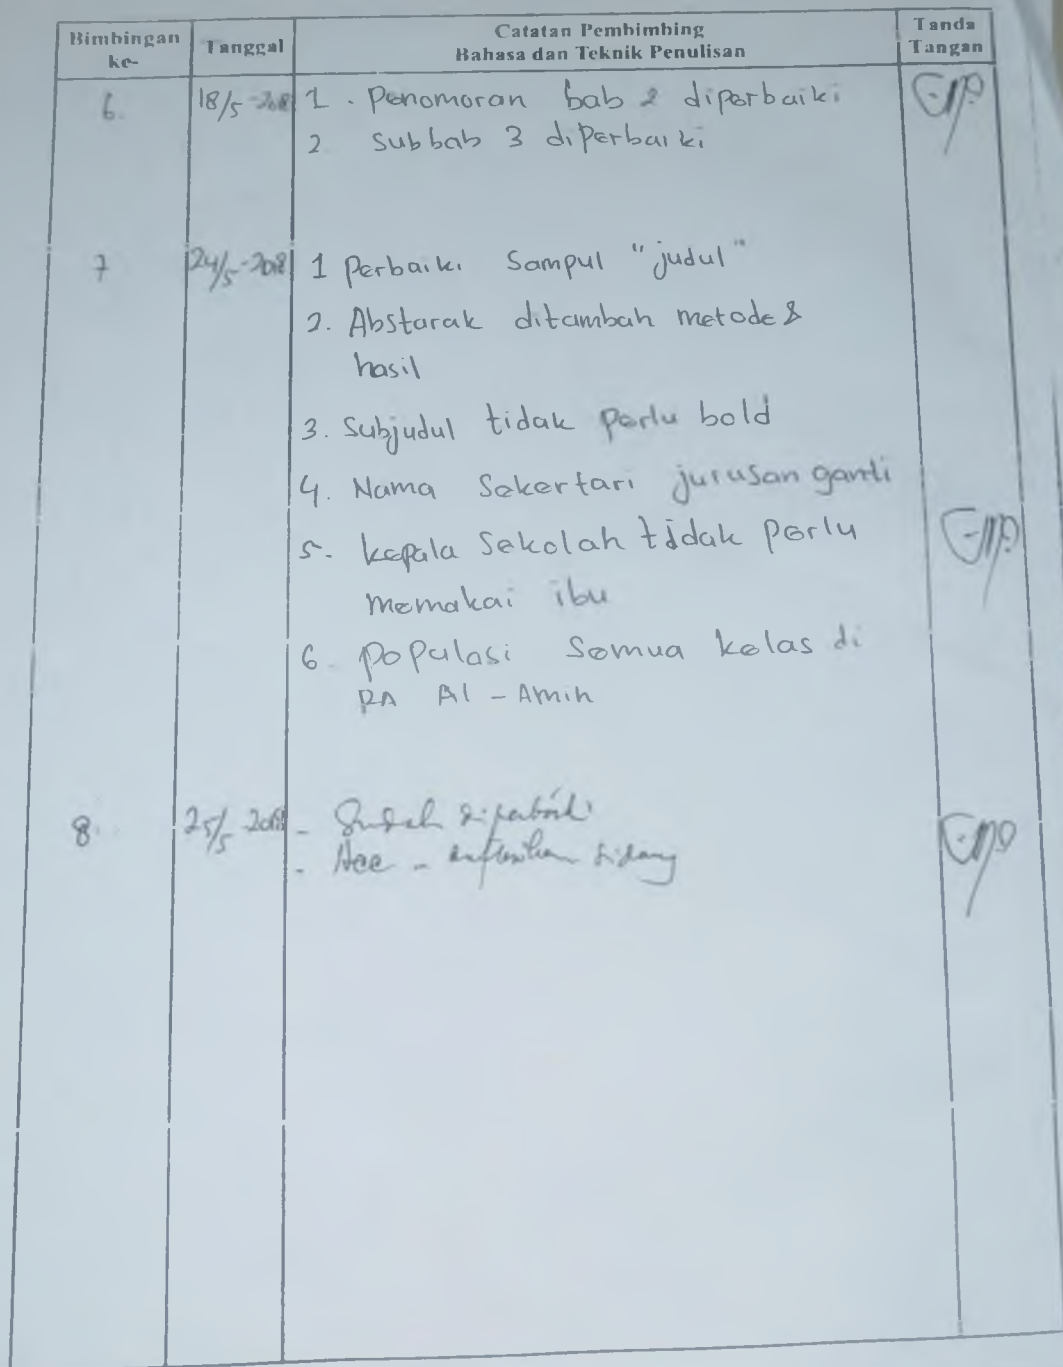 Bimbingan ke-
Tanggal
Catatan Pembimbing
Bahasa dan Teknik Penulisan
Tanda Tangan
6. 18/5-2018 1. Penomoran bab 2 diperbaiki
2 Subbab 3 diperbaiki
7 24/5-2018 1 Perbaiki Sampul "judul"
2. Abstarak ditambah metode &
hasil
3. Subjudul tidak perlu bold
4. Nama Sekertari jurusan ganti
5. kepala Sekolah tidak perlu
memakai ibu
6. populasi Semua kelas di
RA Al-Amin
8. 25/5 2018 - Sudah diperbaiki
- Acc - sidang